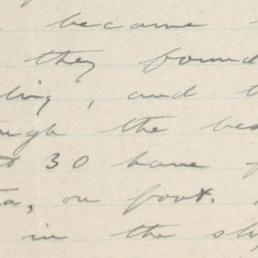 became
they found
ling, and
ough the bes
30 have
ta, on foot.
in the sh